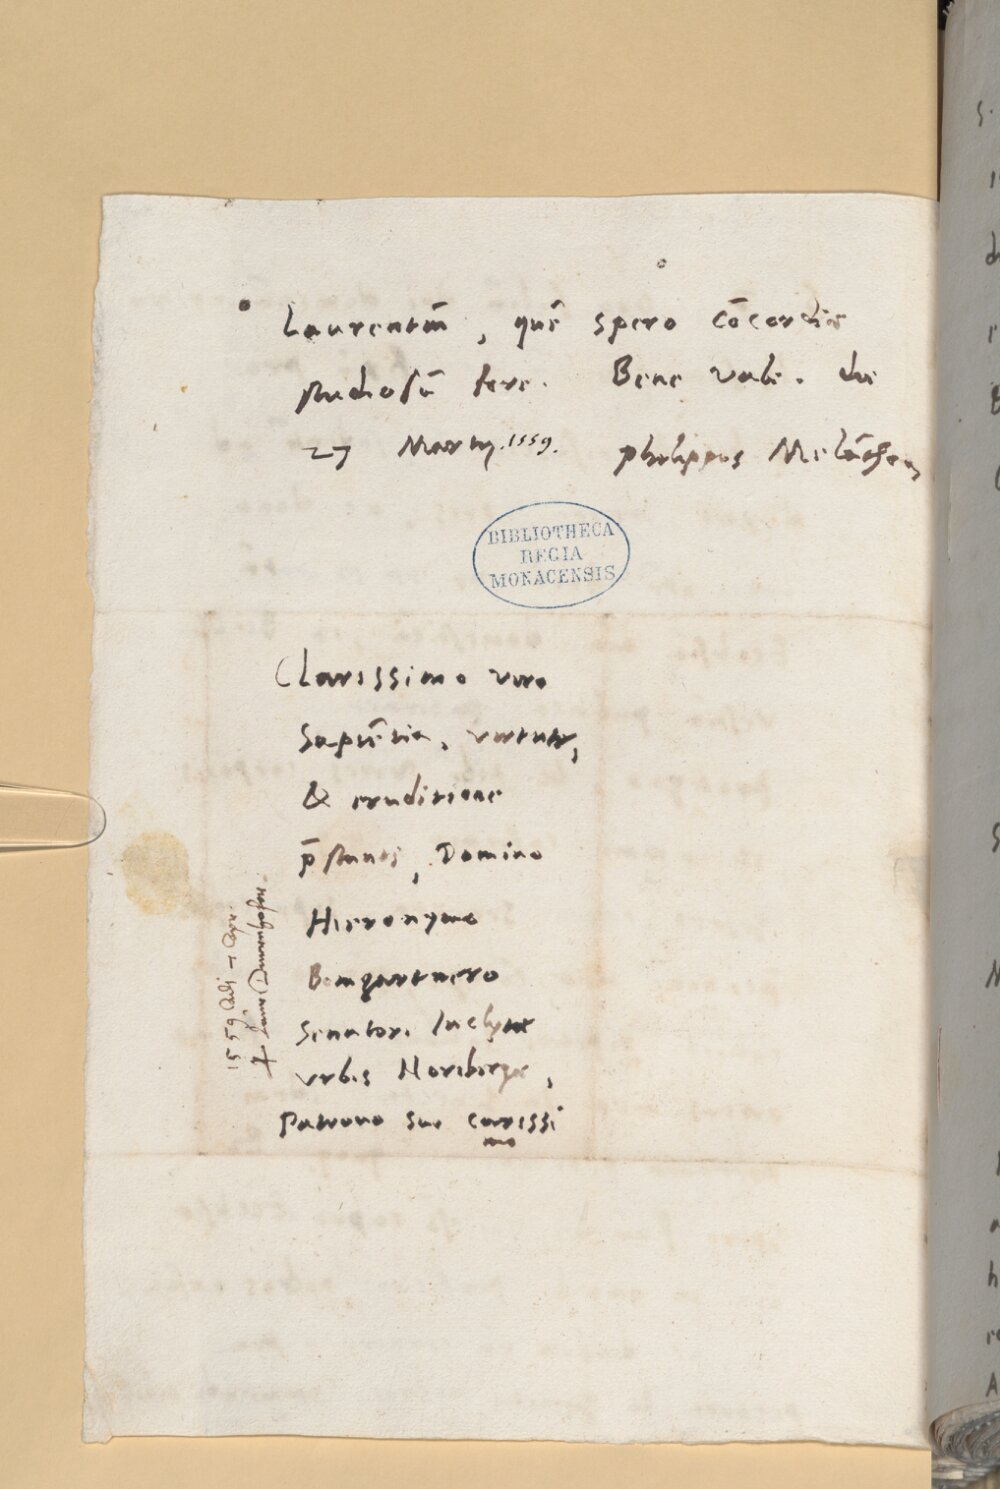 Laurentiū, quē spero cōcordiæ
studiosū fore. Bene vale. die
27 Martij. 1559. philippus Melāthon
BIBLIOTHECA
REGIA
MONACENSIS
Clarissimo viro
Sapiētia, virtute,
& eruditione
p̄stanti, Domino
Hieronymo
Bomgartnero
Senatori Inclytæ
vrbis Noribergæ,
patrono suo carissi
mo
1559